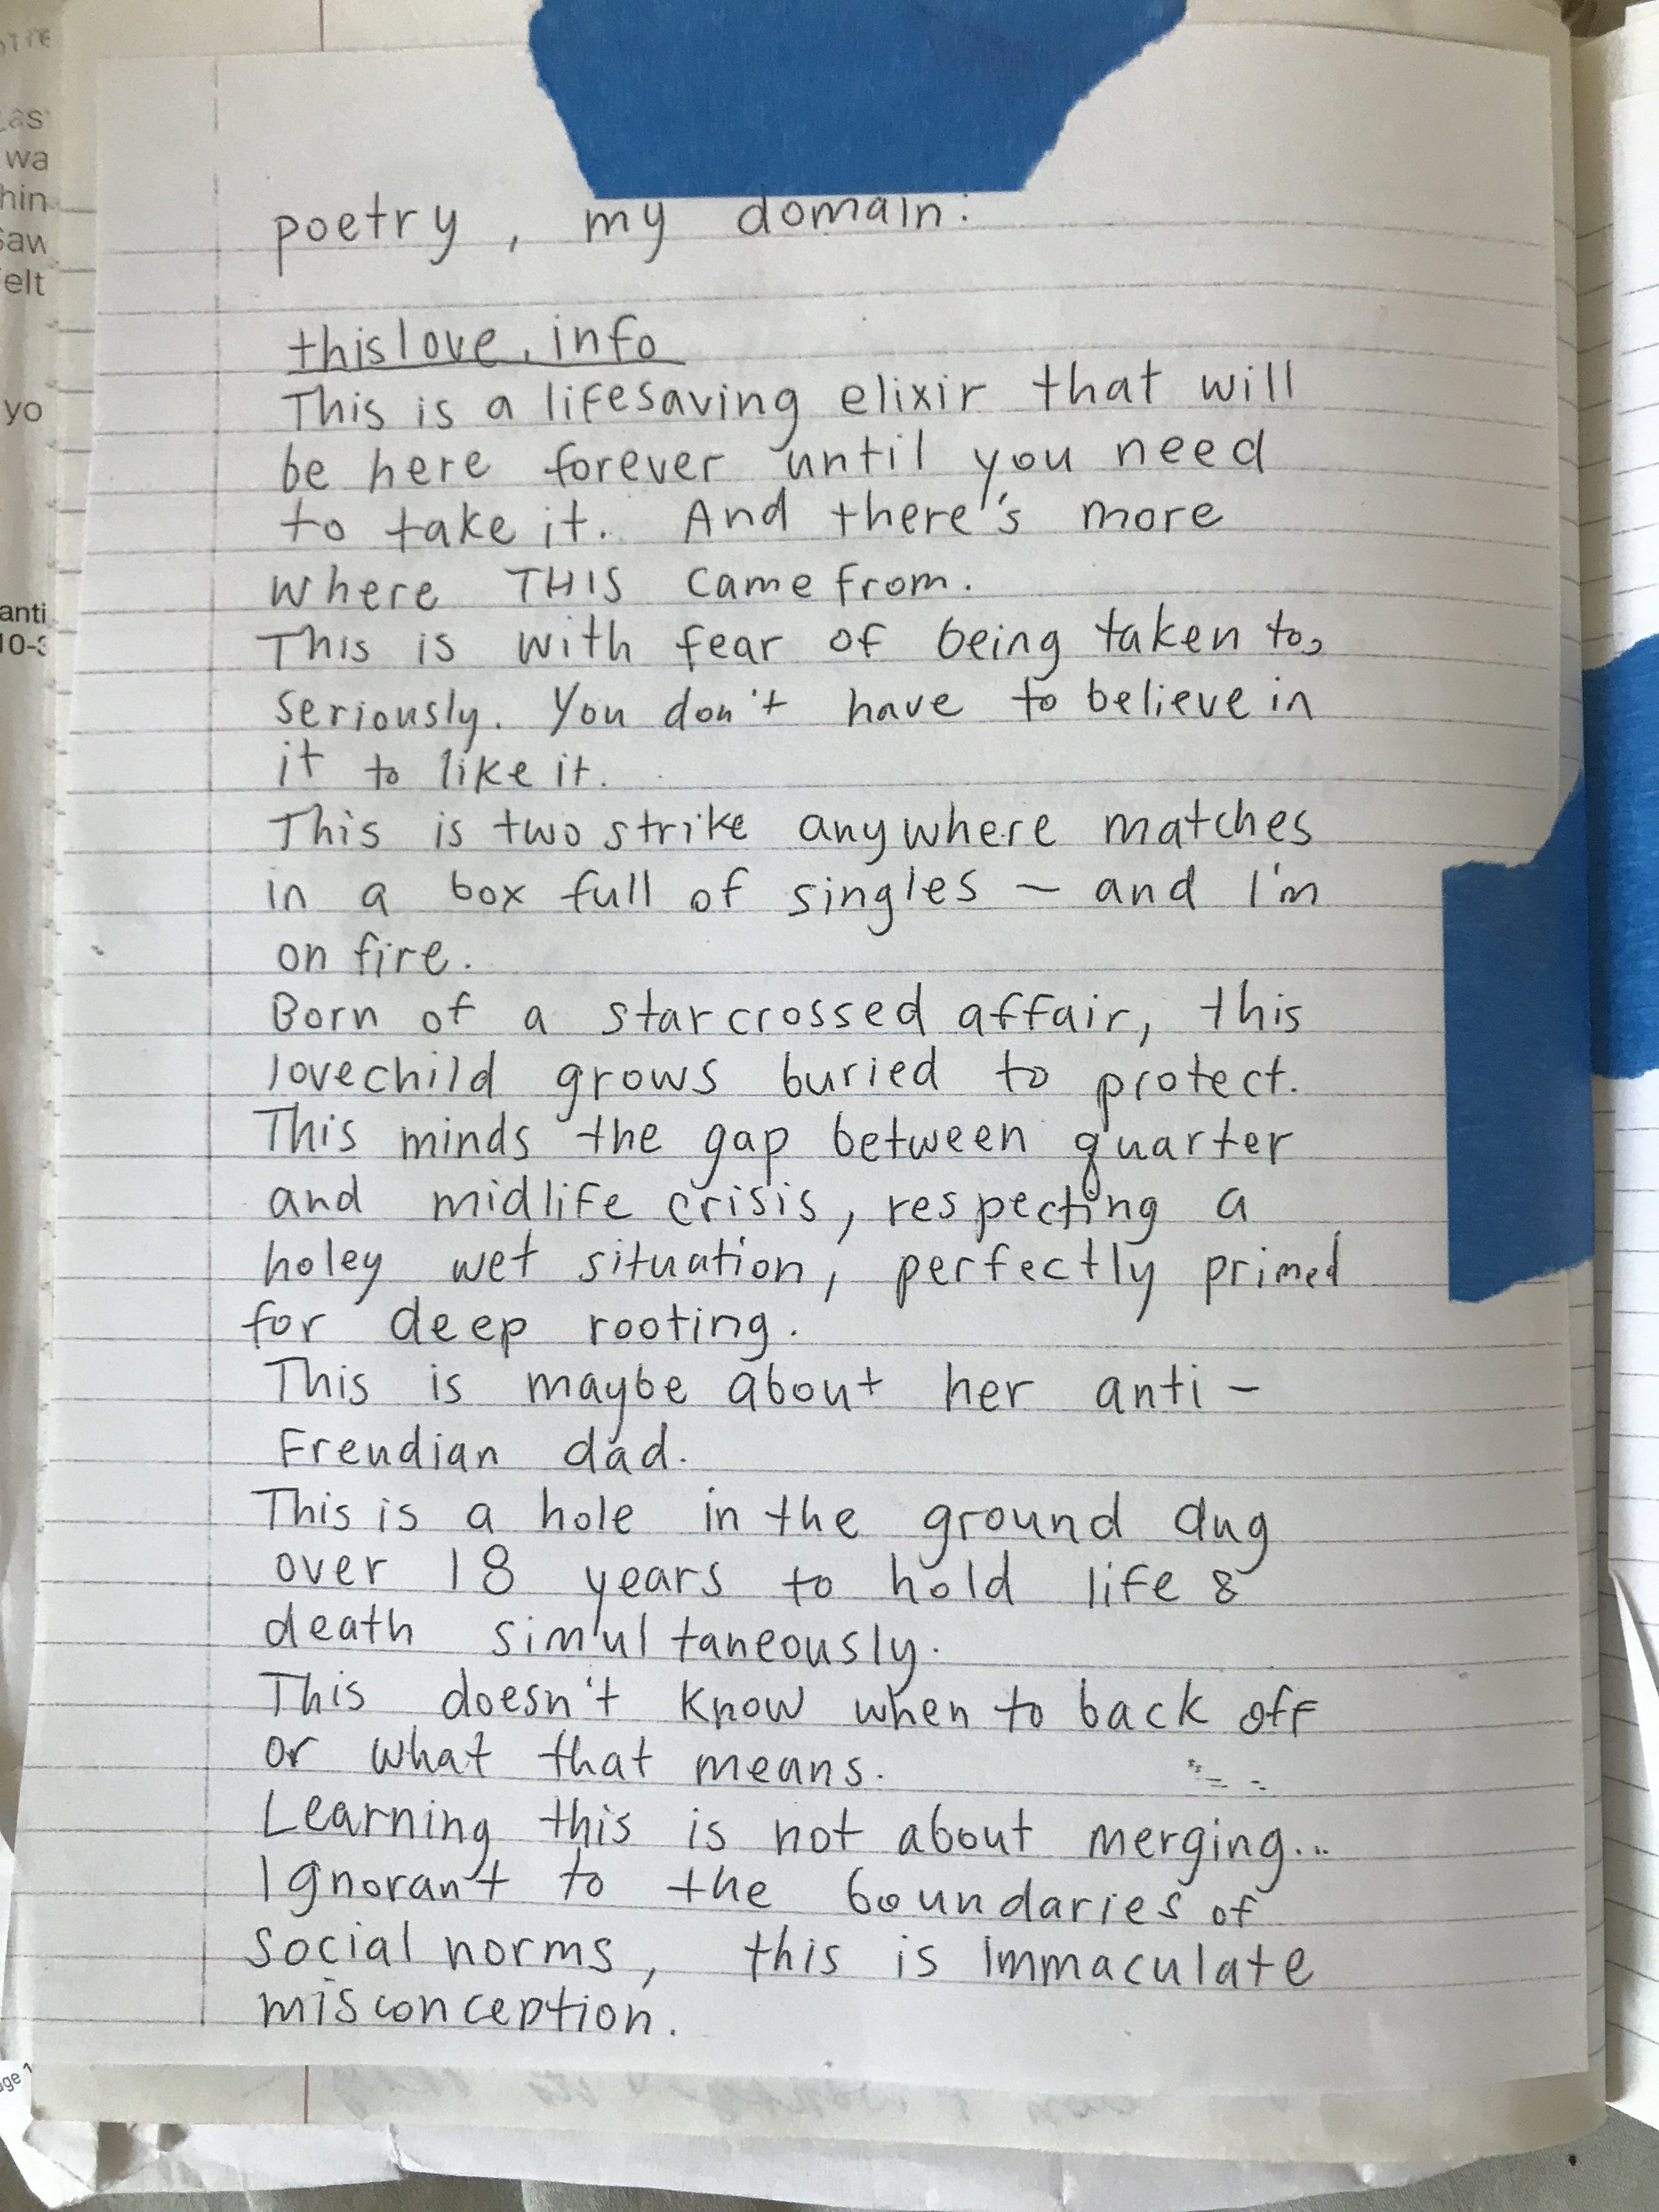 poetry, my domain:
thislove.info
This is a lifesaving elixir that will
be here forever until you need
to take it. And there's more
where THIS came from.
This is with fear of being taken to,
seriously. You don't have to believe in
it to like it.
This is two strike anywhere matches
in a box full of singles – and I'm
on fire.
Born of a starcrossed affair, this
lovechild grows buried to protect.
This minds the gap between quarter
and midlife crisis, respecting a
holey wet situation, perfectly primed
for deep rooting.
This is maybe about her anti-
Freudian dad.
This is a hole in the ground dug
over 18 years to hold life &
death simultaneously.
This doesn't know when to back off
or what that means.
Learning this is not about merging...
Ignorant to the boundaries of
social norms, this is immaculate
misconception.
as
wa
hin
saw
felt
yo
anti
10-3